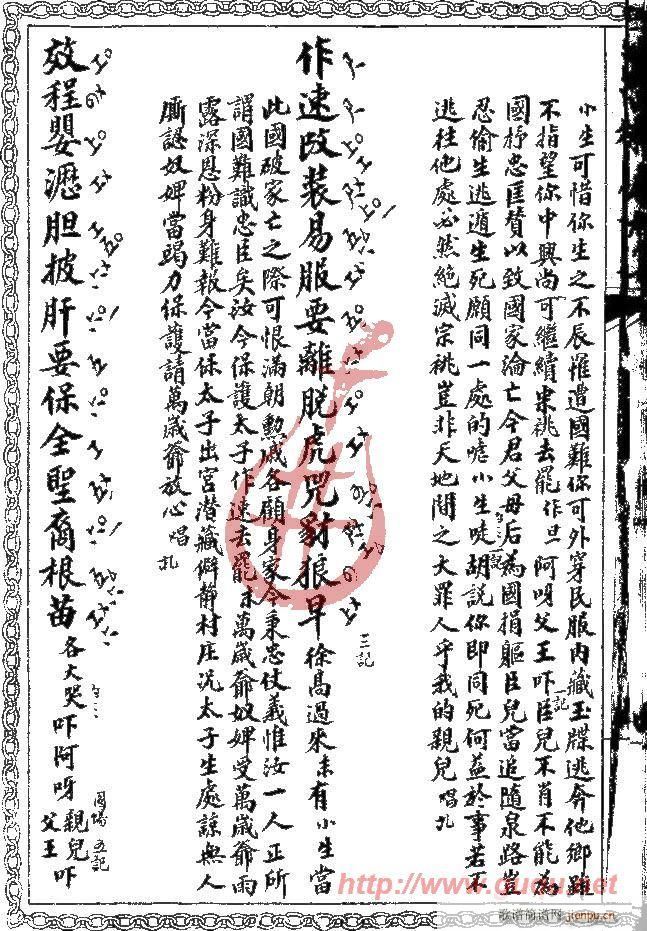 小生可惜你生之不辰罹遭國難你可外穿民服內藏玉牒逃奔他鄉雖
不指望你中興尚可繼續宗祧去罷作旦阿呀父王吓臣兒不肖不能為
一記
國抒忠匡贊以致國家淪亡今君父母后為國捐軀臣兒當追隨泉路豈
忍偷生逃遁生死願同一處的嘘小生唗胡說你即同死何益於事若不
逃往他處必然絕滅宗祧豈非天地間之大罪人乎我的親兒唱
作速改裝易服要離脫虎咒豺狼早徐高過來末有小生當
三記
此國破家亡之際可恨滿朝勲戚各顧身家今秉忠仗義惟汝一人正所
謂國難識忠臣矣汝今保護太子作速去罷末萬歲爺奴婢受萬歲爺雨
露深恩粉身難報今當保太子出宮潛藏僻靜村庄況太子生處諒無人
厮認奴婢當竭力保護請萬歲爺放心唱
效程嬰瀝胆披肝要保全聖裔根苗各大哭吓阿呀親兒父王吓
圓場五記
http://www.guqu.net
歌谱简谱网
jianpu.cn